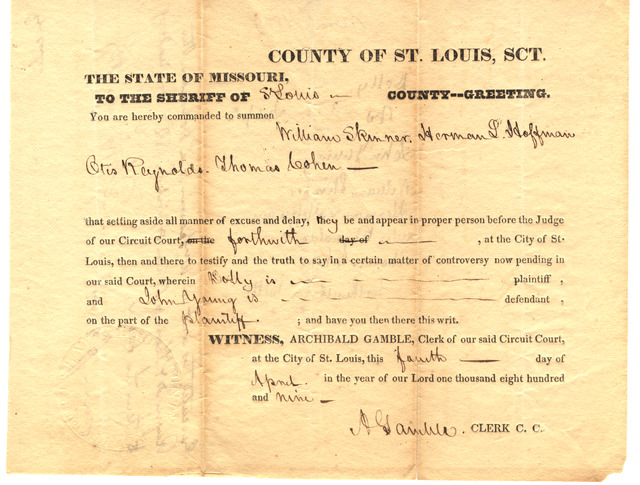 COUNTY OF ST. LOUIS, SCT.
THE STATE OF MISSOURI,
TO THE SHERIFF OF St Louis — COUNTY--GREETING.
You are hereby commanded to summon
William Skinner. Herman L Hoffman
Otis Reynolds. Thomas Cohen —
that setting aside all manner of excuse and delay, they be and appear in proper person before the Judge
of our Circuit Court, on the forthwith day of — , at the City of St.
Louis, then and there to testify and the truth to say in a certain matter of controversy now pending in
our said Court, wherein Dolly is — plaintiff ,
and John Young is — defendant ,
on the part of the plaintiff ; and have you then there this writ.
WITNESS, ARCHIBALD GAMBLE, Clerk of our said Circuit Court,
at the City of St. Louis, this fourth — day of
April in the year of our Lord one thousand eight hundred
and nine —
A Gamble. CLERK C. C.